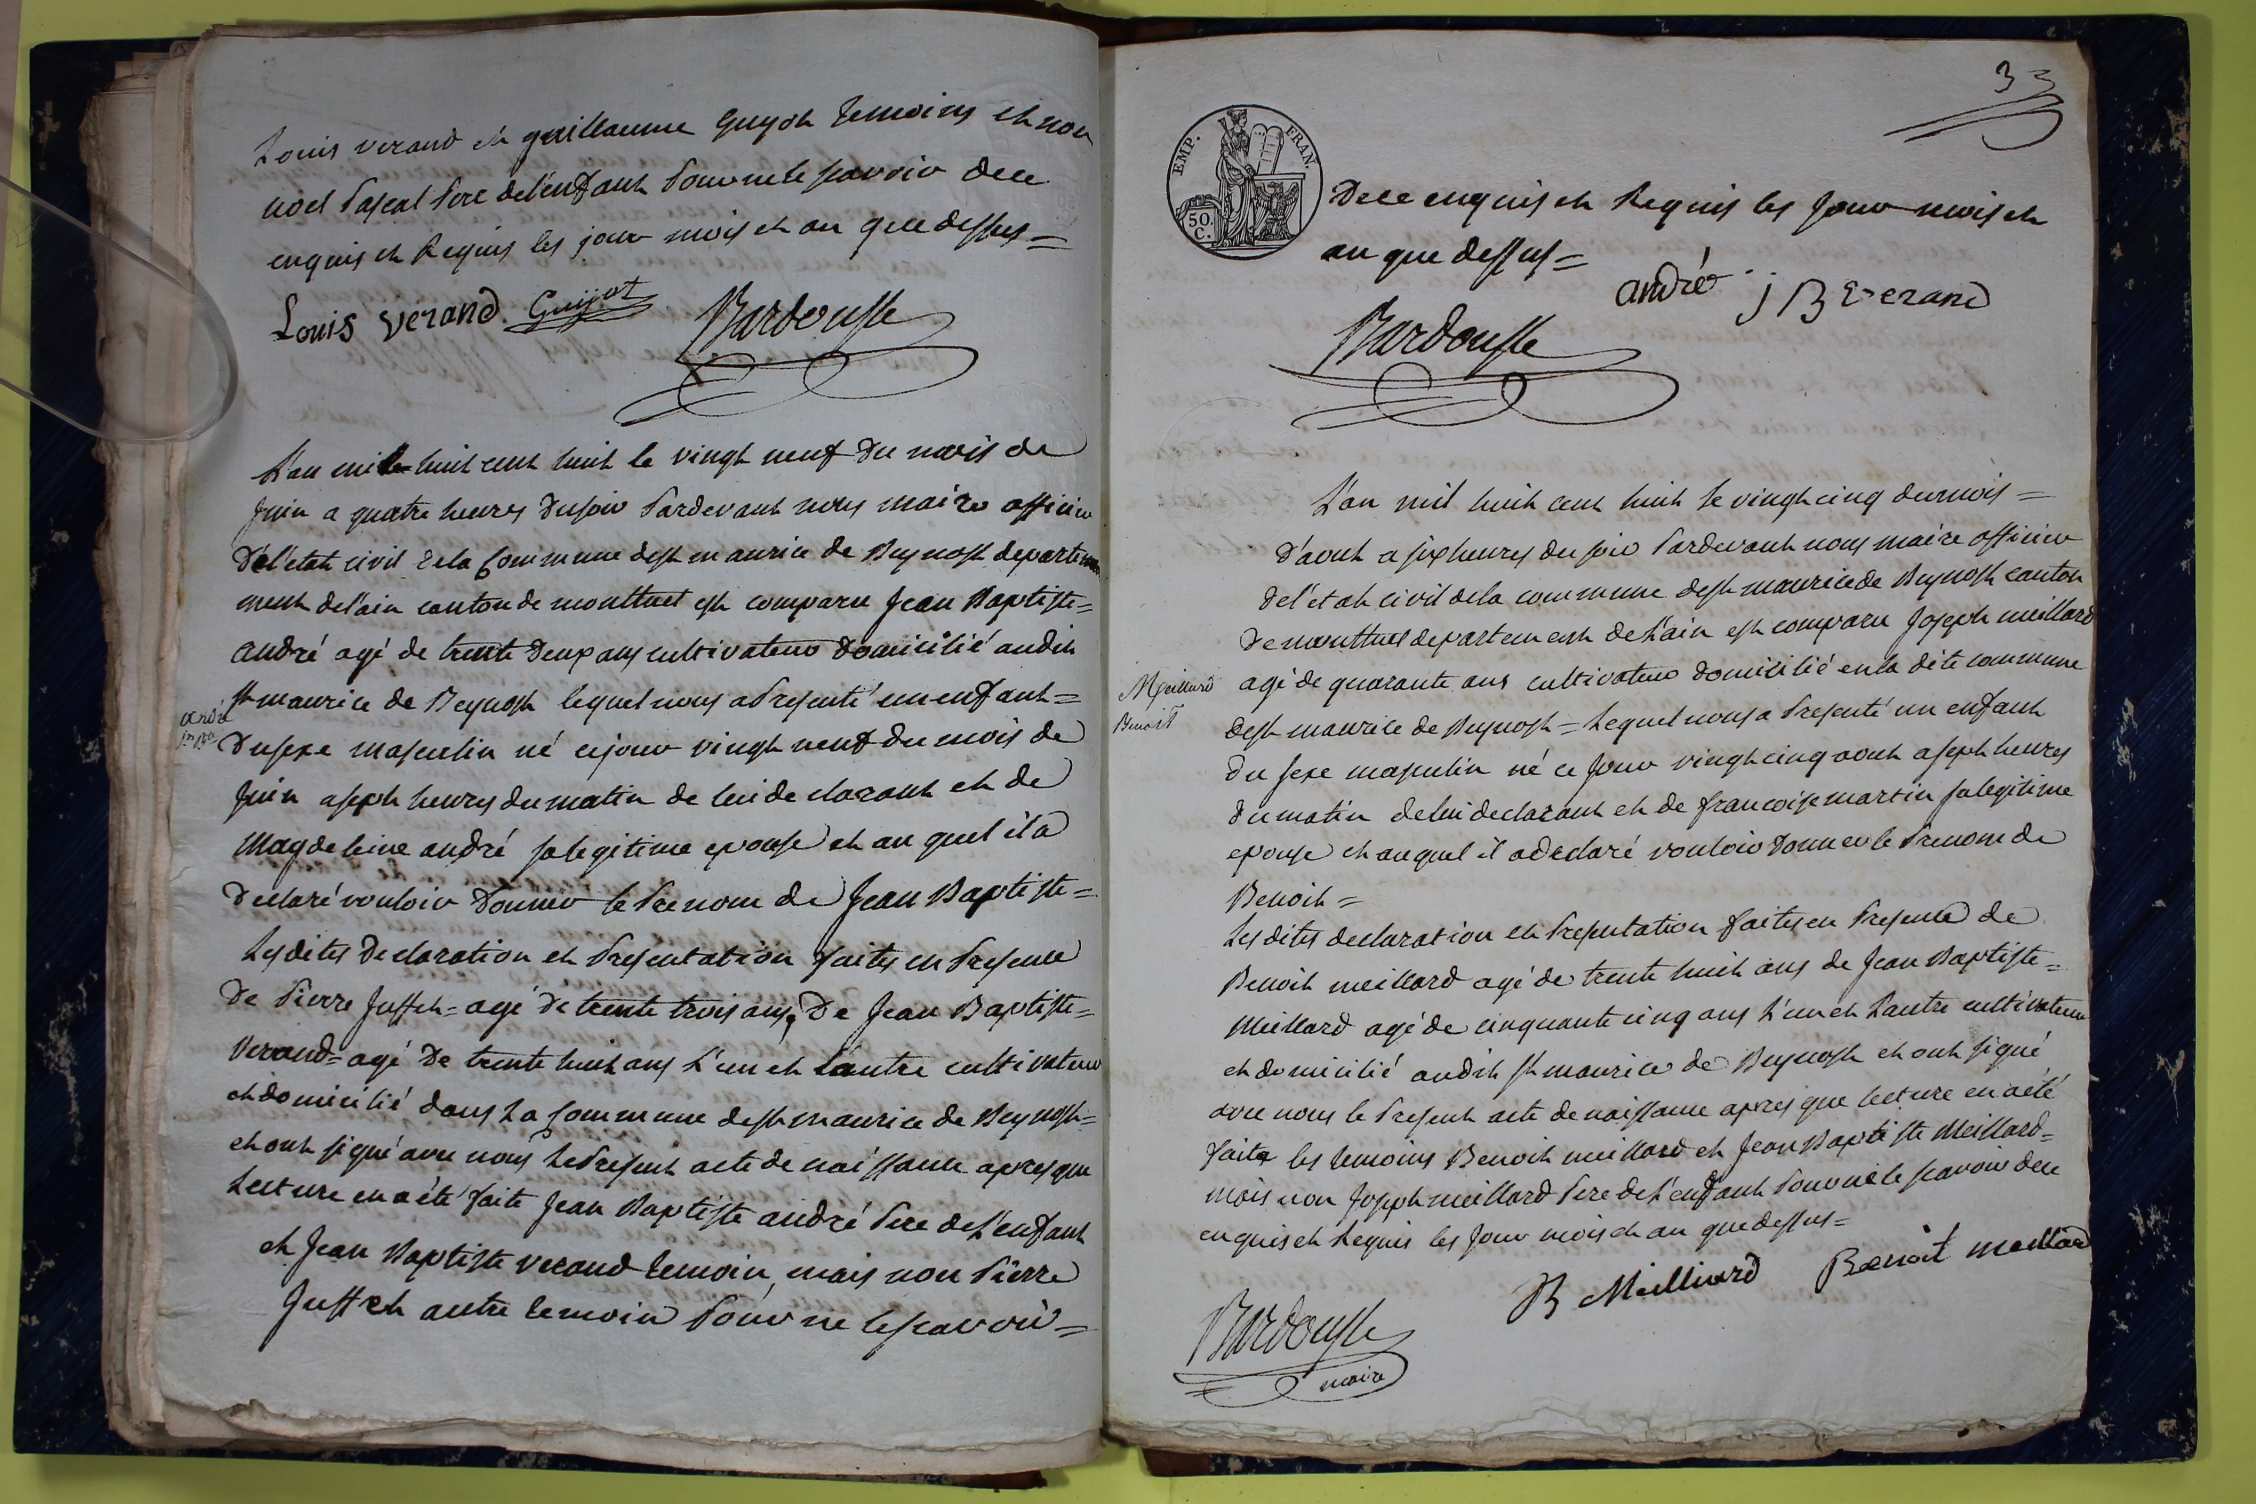 Louis verand et guillaume Guyot temoins et non
noel Pascal Pere de l'enfant Pour ne le scavoir de ce
enquis et Requis les jour mois et an que dessus =
Louis verand Guyot Bardousse
L'an mil huit cent huit le vingt neuf du mois de
Juin a quatre heures du soir Pardevant nous maire officier
de l'etat civil de la Commune de st maurice de Beynost departe
ment de l'ain canton de montluel est comparu Jean Baptiste =
andré agé de trente deux ans cultivateur domicilié au dit
st maurice de Beynost lequel nous a Presenté un enfant =
andré
jn Bte
du sexe masculin né ce jour vingt neuf du mois de
Juin a sept heures du matin de lui declarant et de
Magdeleine andré sa legitime epouse et au quel il a
declaré vouloir donner le Prenom de Jean Baptiste =
Les dites declaration et Presentation faites en Presence
de Pierre Juffet = agé de trente trois ans, de Jean Baptiste =
verand = agé de trente huit ans L'un et L'autre cultivateur
et domicilié dans La Commune de st maurice de Beynost =
et ont signé avec nous Le Present acte de naissance apres que
Lecture en a été faite Jean Baptiste andré Pere de L'enfant
et Jean Baptiste verand temoin, mais non Pierre
Juffet autre temoin Pour ne le scavoir =
33
EMP. FRAN.
50 C.
de ce enquis et Requis les Jour mois et
an que dessus =
andré j B verand
Bardousse
L'an mil huit cent huit le vingt cinq du mois =
d'aout a six heures du soir Pardevant nous maire officier
de l'etat civil de la commune de st maurice de Beynost canton
de montluel departement de L'ain est comparu Joseph meillard
Meillard
Benoit
agé de quarante ans cultivateur domicilié en la dite commune
de st maurice de Beynost = Lequel nous a Presenté un enfant
du sexe masculin né ce Jour vingt cinq aout a sept heures
du matin de lui declarant et de francoise martin sa legitime
epouse et auquel il a declaré vouloir donner le Prenom de
Benoit =
Les dites declaration et Presentation faites en Presence de
Benoit meillard agé de trente huit ans de Jean Baptiste =
Meillard agé de cinquante cinq ans L'un et L'autre cultivateur
et domicilié au dit st maurice de Beynost et ont signé
avec nous le Present acte de naissance apres que lecture en a été
faite les temoins Benoit meillard et Jean Baptiste Meillard =
mais non Joseph meillard Pere de L'enfant Pour ne le scavoir de ce
enquis et Requis les Jour mois et an que dessus =
B Meilliard Benoit meillard
Bardousse
maire